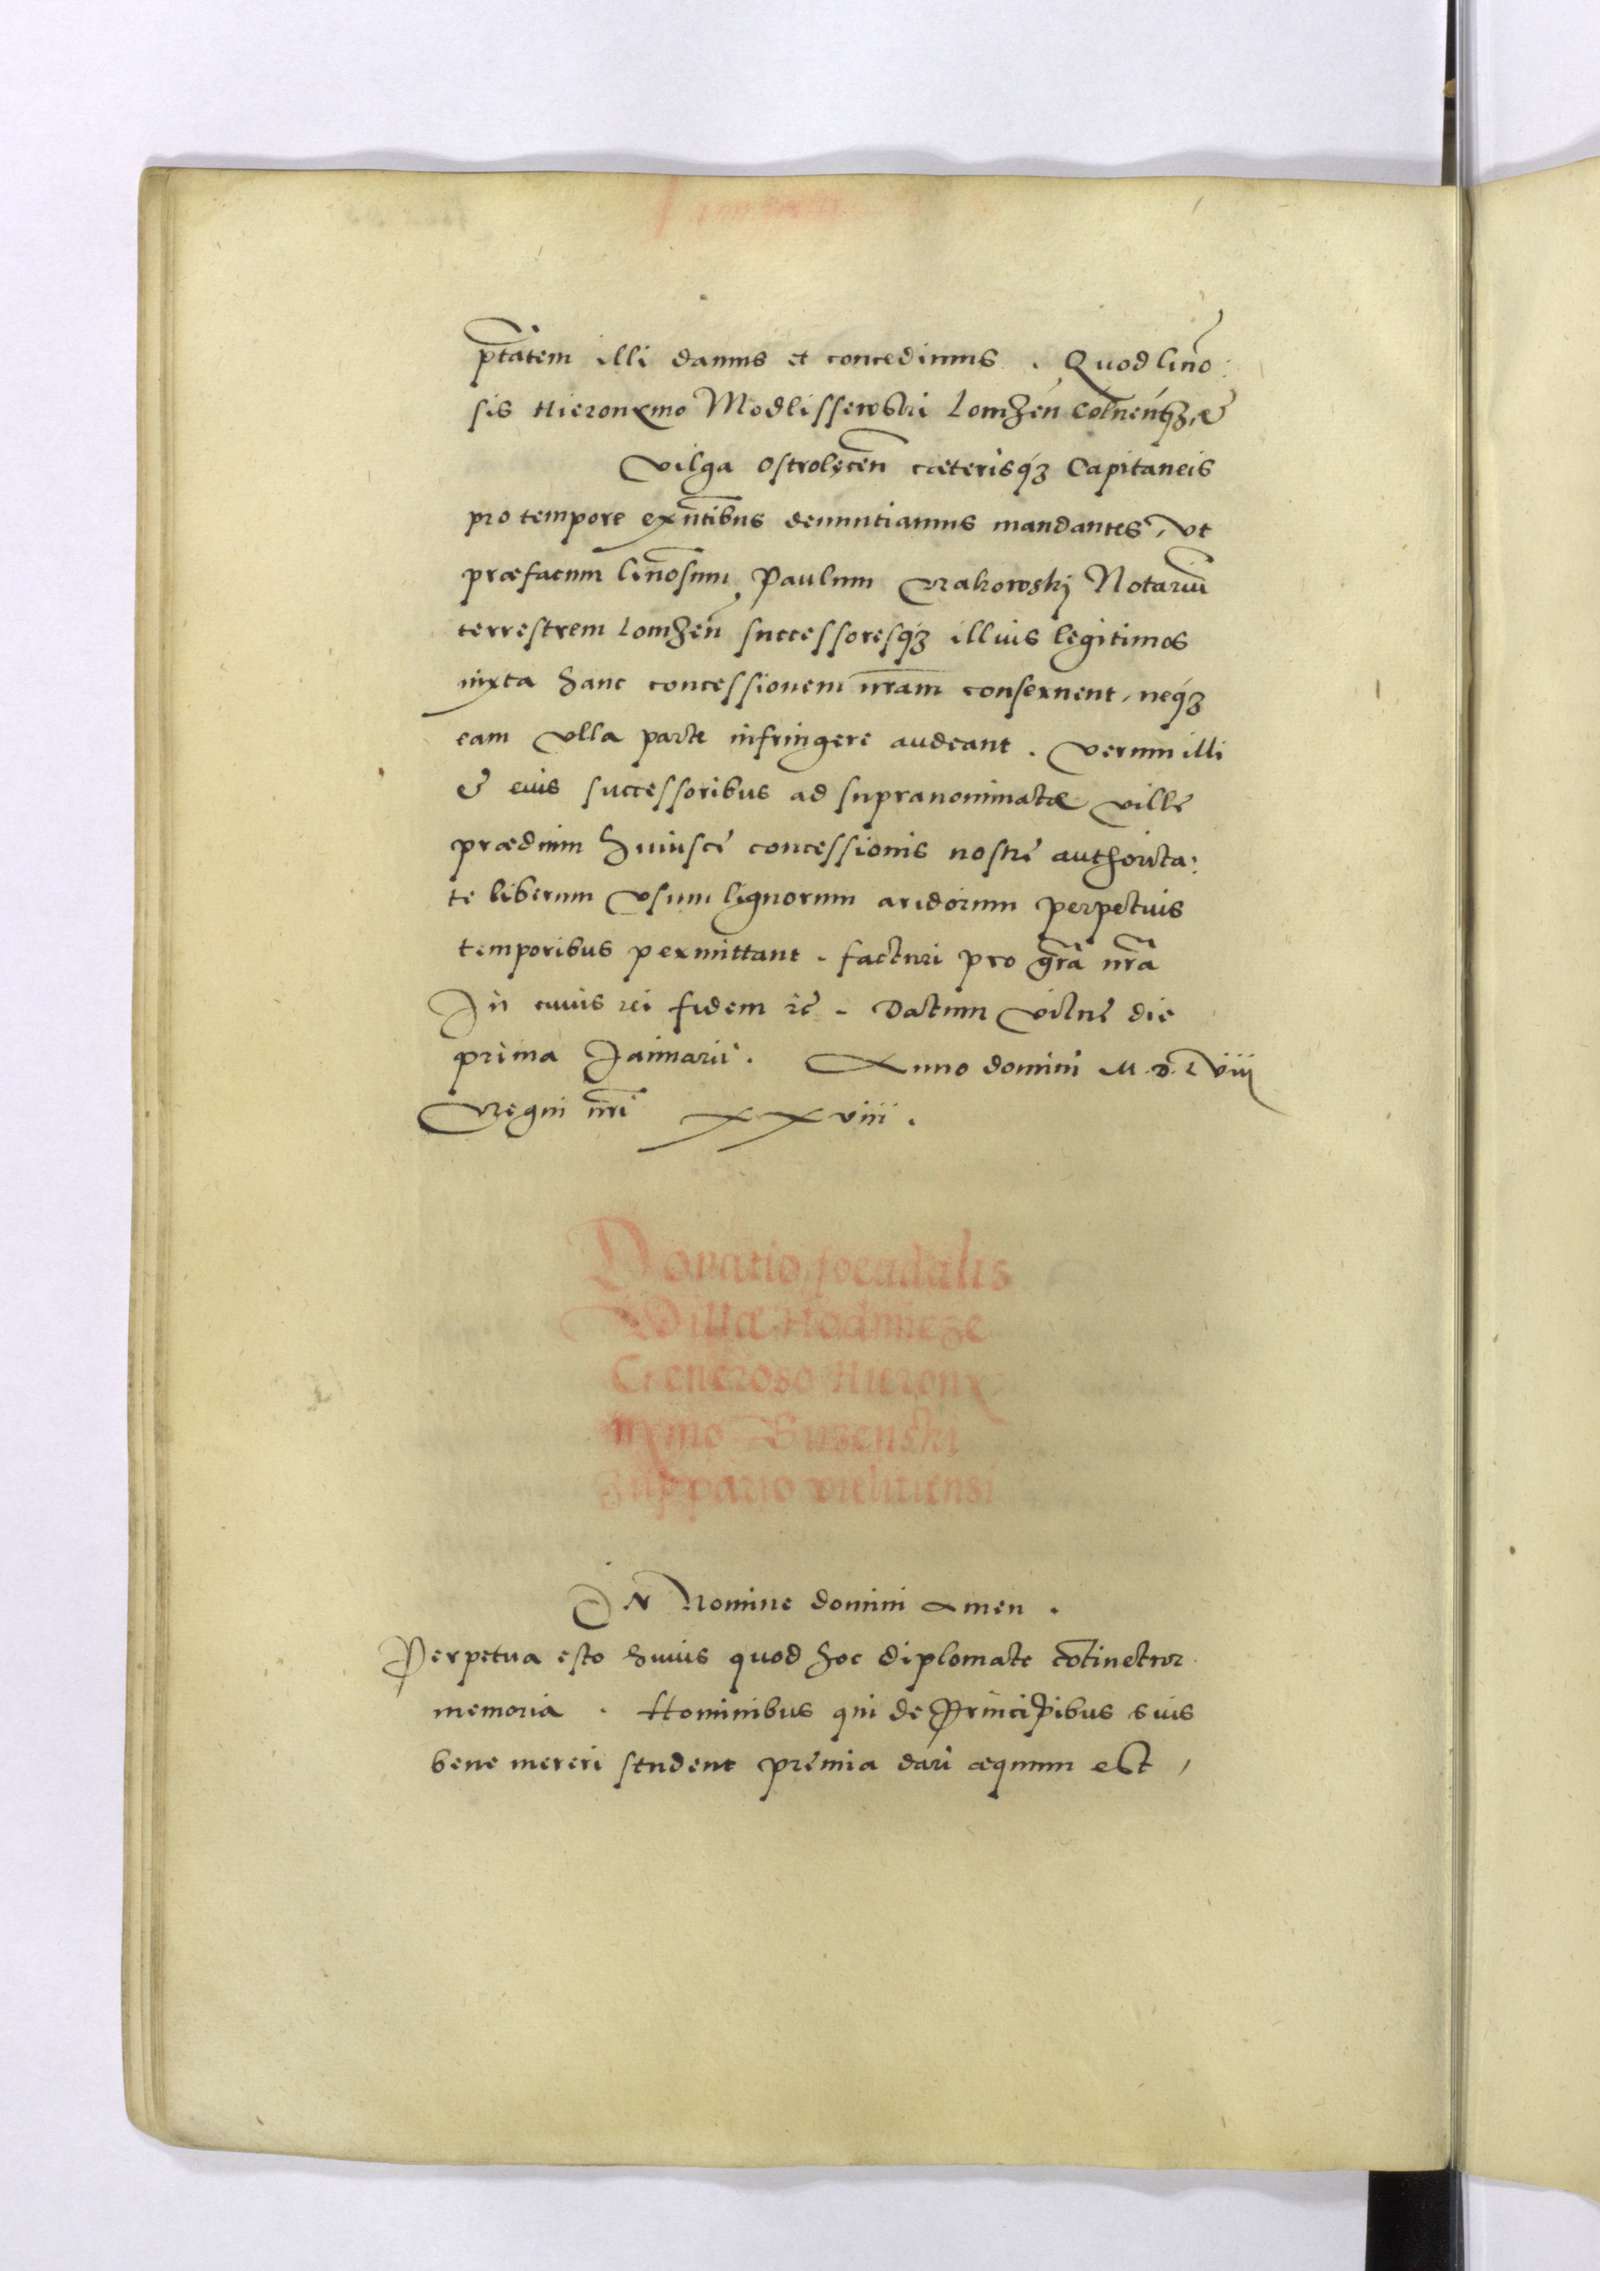 ptãtem illi damus et concedimus. Quod Gnõ:
sis Hieronymo Modlissewski Lomzeñ Colneñ q3, &
Vilga Ostrolęceñ cæterisq3 Capitaneis
pro tempore exñtibus denuntiamus mandantes, ut
præfatum Gñosum Paulum Rakowskÿ Notariũ
terrestrem Lomzeñ successoresq3 illius legitimos
iuxta hanc concessionem nr̃am conservent, neq3
eam ulla parte infringere audeant. Verum illi
& eius successoribus ad supranominatæ villę
prædium huiuscę concessionis nostrę authorita:
te liberum usum lignorum aridorum perpetuis
temporibus permittant. facturi pro gr̃a nr̃a
In cuius rei fidem ec̃. Datum Vilnę die
prima Januarii. Anno domini M.D.Lviii
Regni nr̃i xxviii.
Donatio foeudalis
Villæ Hodmieze
Generoso Hierony
mo Buzenski
Zuppario vielitiensi
IN Nomine domini Amen.
Perpetua esto huius quod hoc diplomate cõtinetur
memoria. Hominibus qui de Principibus suis
bene mereri student pręmia dari æquum est,